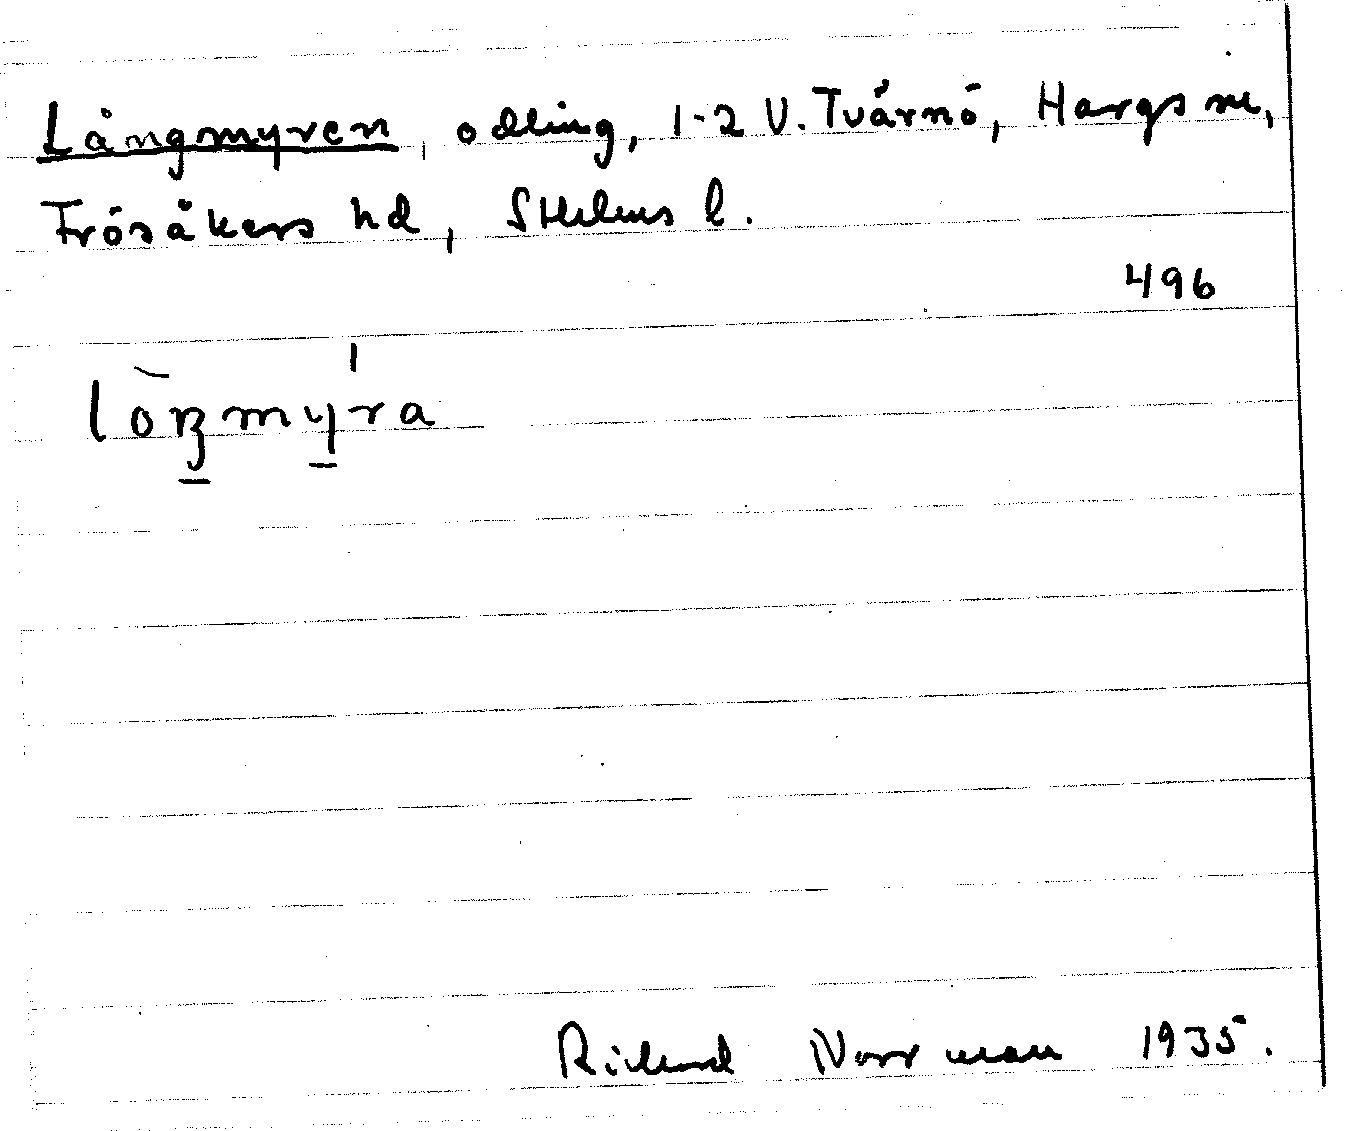 Långmyren, odling, 1-2 V. Tvärnö, Hargs sn,
Frösåkers hd, Sthlms l.
496
lòŋmy̱ra
Rickard Norrman 1935.